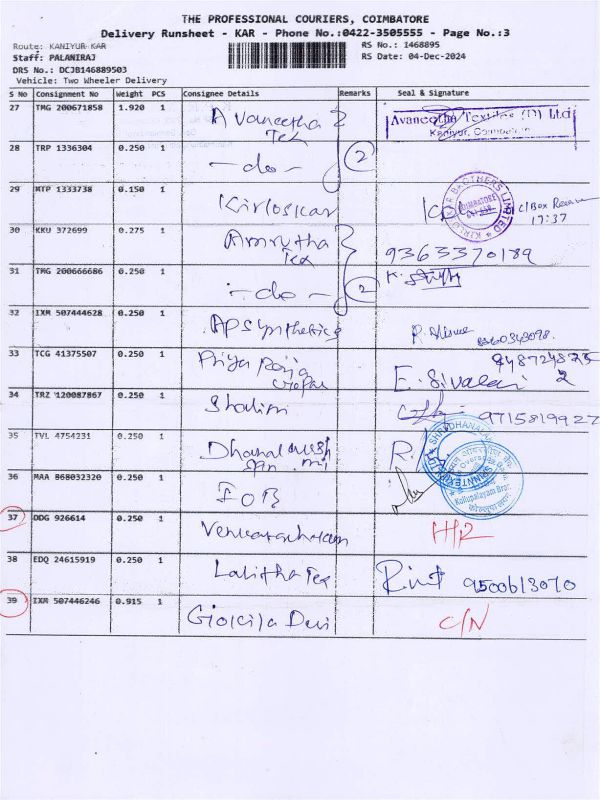 THE PROFESSIONAL COURIERS, COIMBATORE
Delivery Runsheet - KAR - Phone No.:0422-3505555 - Page No.:3
Route: KANIYUR-KAR
RS No.: I468895
Staff: PALANIRAJ
RS Date: 04-Dec-2024
DRS No.: DCJB146889503
Vehicle: Two Wheeler Delivery
S No Consignment No Weight PCS Consignee Details Remarks Seal & Signature
27 TMG 200671858 1.920 1 Avaneetha Tex
Avaneetha Textiles (P) Ltd
Kaniyur, Coimbatore
28 TRP 1336304 0.250 1 -do- 2
29 MTP 1333738 0.150 1 Kirloskar
KIRLOSKAR BROTHERS LIMITED
COIMBATORE
17:37
30 KKU 372699 0.275 1 Amrutha Tex 9363370189
31 TMG 200666686 0.250 1 -do- 2
32 IXM 507444628 0.250 1 AP Synthetics
33 TCG 41375507 0.250 1 Priya Raja
34 TRZ 120087867 0.250 1 Shalini 9715819927
35 TVL 4754231 0.250 1 Dhanalauxmi Spin mil R.
36 MAA 868032320 0.250 1 IOB
Kollupalayam
37 DDG 926614 0.250 1 Venkatachalam
38 EDQ 24615919 0.250 1 Lalitha Tex 9500613070
39 IXM 507446246 0.915 1 Gokila Devi C/N